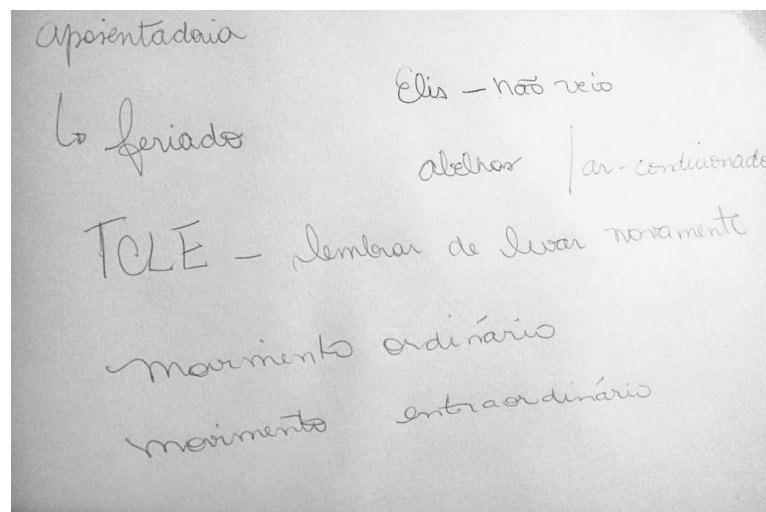 aposentadoria
Elis – não veio
↳ feriado
abelhas | ar-condicionado
TCLE – lembrar de levar novamente
movimento ordinário
movimento extraordinário